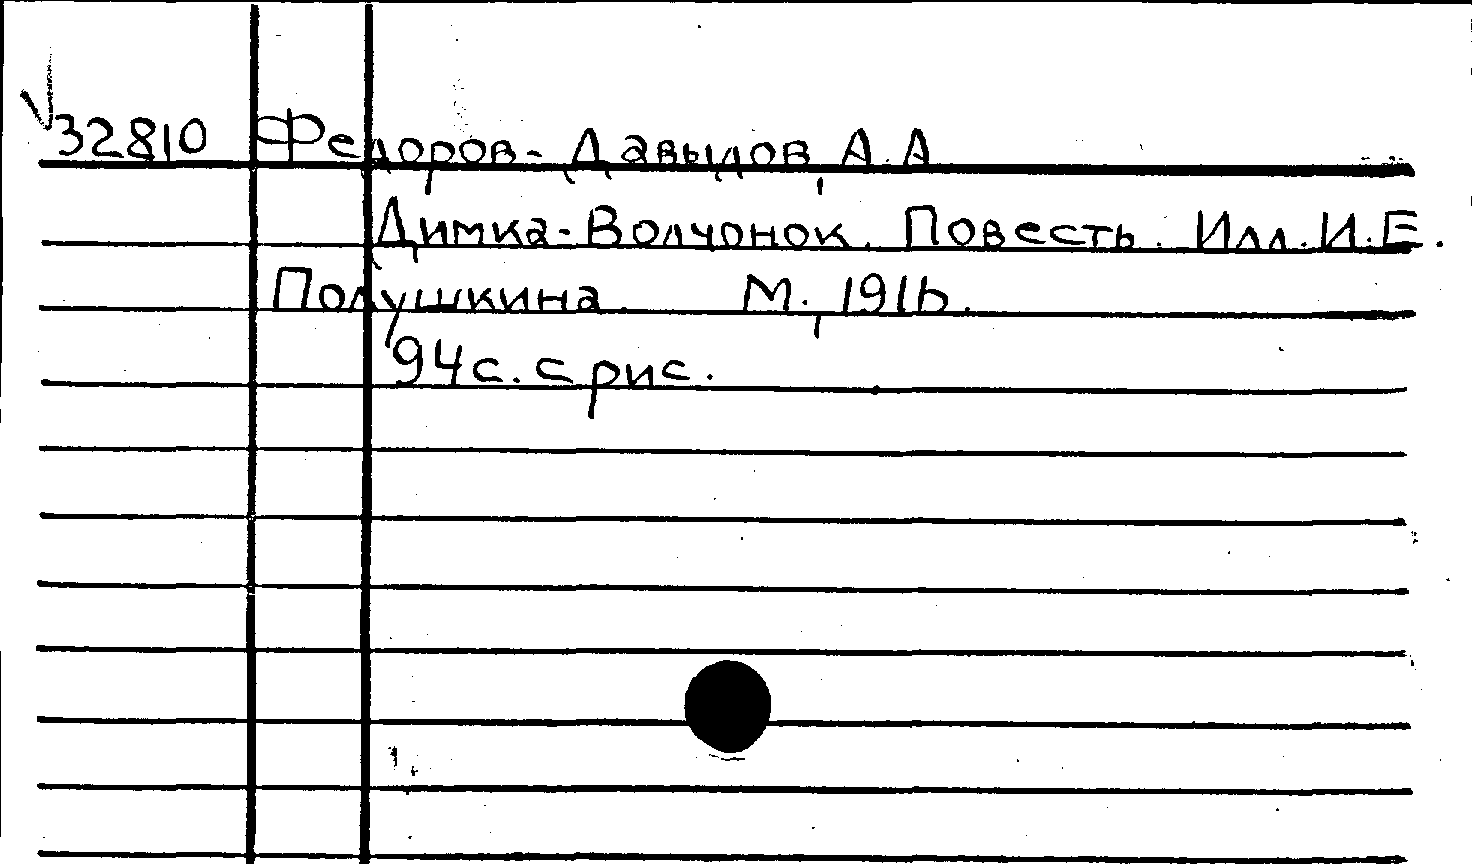 32810 Федоров-Давыдов, А.А
Димка-Волчонок. Повесть. Илл. И.Е.
Полушкина. М., 1916.
94с. с рис.